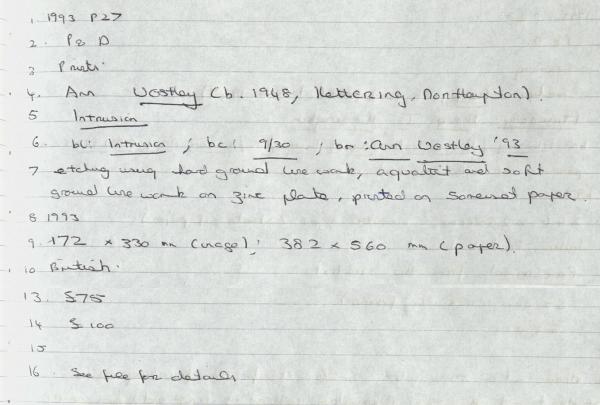 1. 1993 P27
2. P & D
3 Prints.
4. Ann Westley (b. 1948, Kettering, Northampton).
5 Intrusion
6. bl: Intrusion ; bc: 9/30 ; br: Ann Westley '93
7 etching using hard ground line work, aquatint and soft
ground line work on zinc plate, printed on Somerset paper.
8 1993
9. 172 x 330 mm (image); 382 x 560 mm (paper).
10 British.
13. £75
14 £100
15
16 See file for details